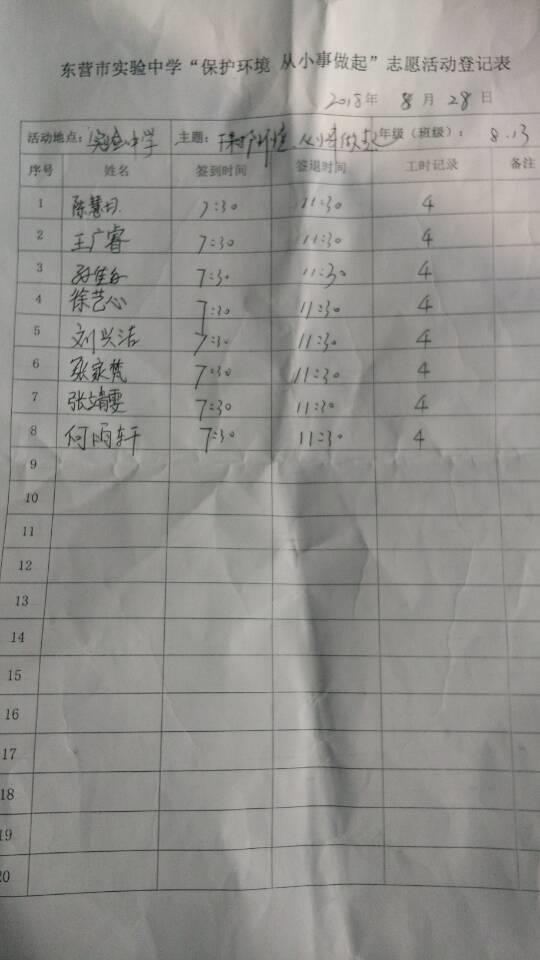 东营市实验中学“保护环境 从小事做起”志愿活动登记表
2018年 8月28日
活动地点：实验中学 主题：保护环境 从小事做起 年级（班级）：8.13
序号 姓名 签到时间 签退时间 工时记录 备注
1 陈慧 7:30 11:30 4
2 王广睿 7:30 11:30 4
3 孙佳 7:30 11:30 4
4 徐艺心 7:30 11:30 4
5 刘兴洁 7:30 11:30 4
6 张家梵 7:30 11:30 4
7 张婧雯 7:30 11:30 4
8 何雨轩 7:30 11:30 4
9
10
11
12
13
14
15
16
17
18
19
20